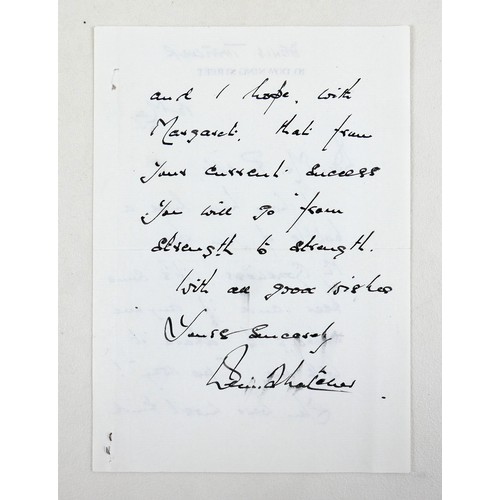 and I hope, with
Margaret, that from
your current success
you will go from
strength to strength.
With all good wishes
Yours sincerely
Denis Thatcher